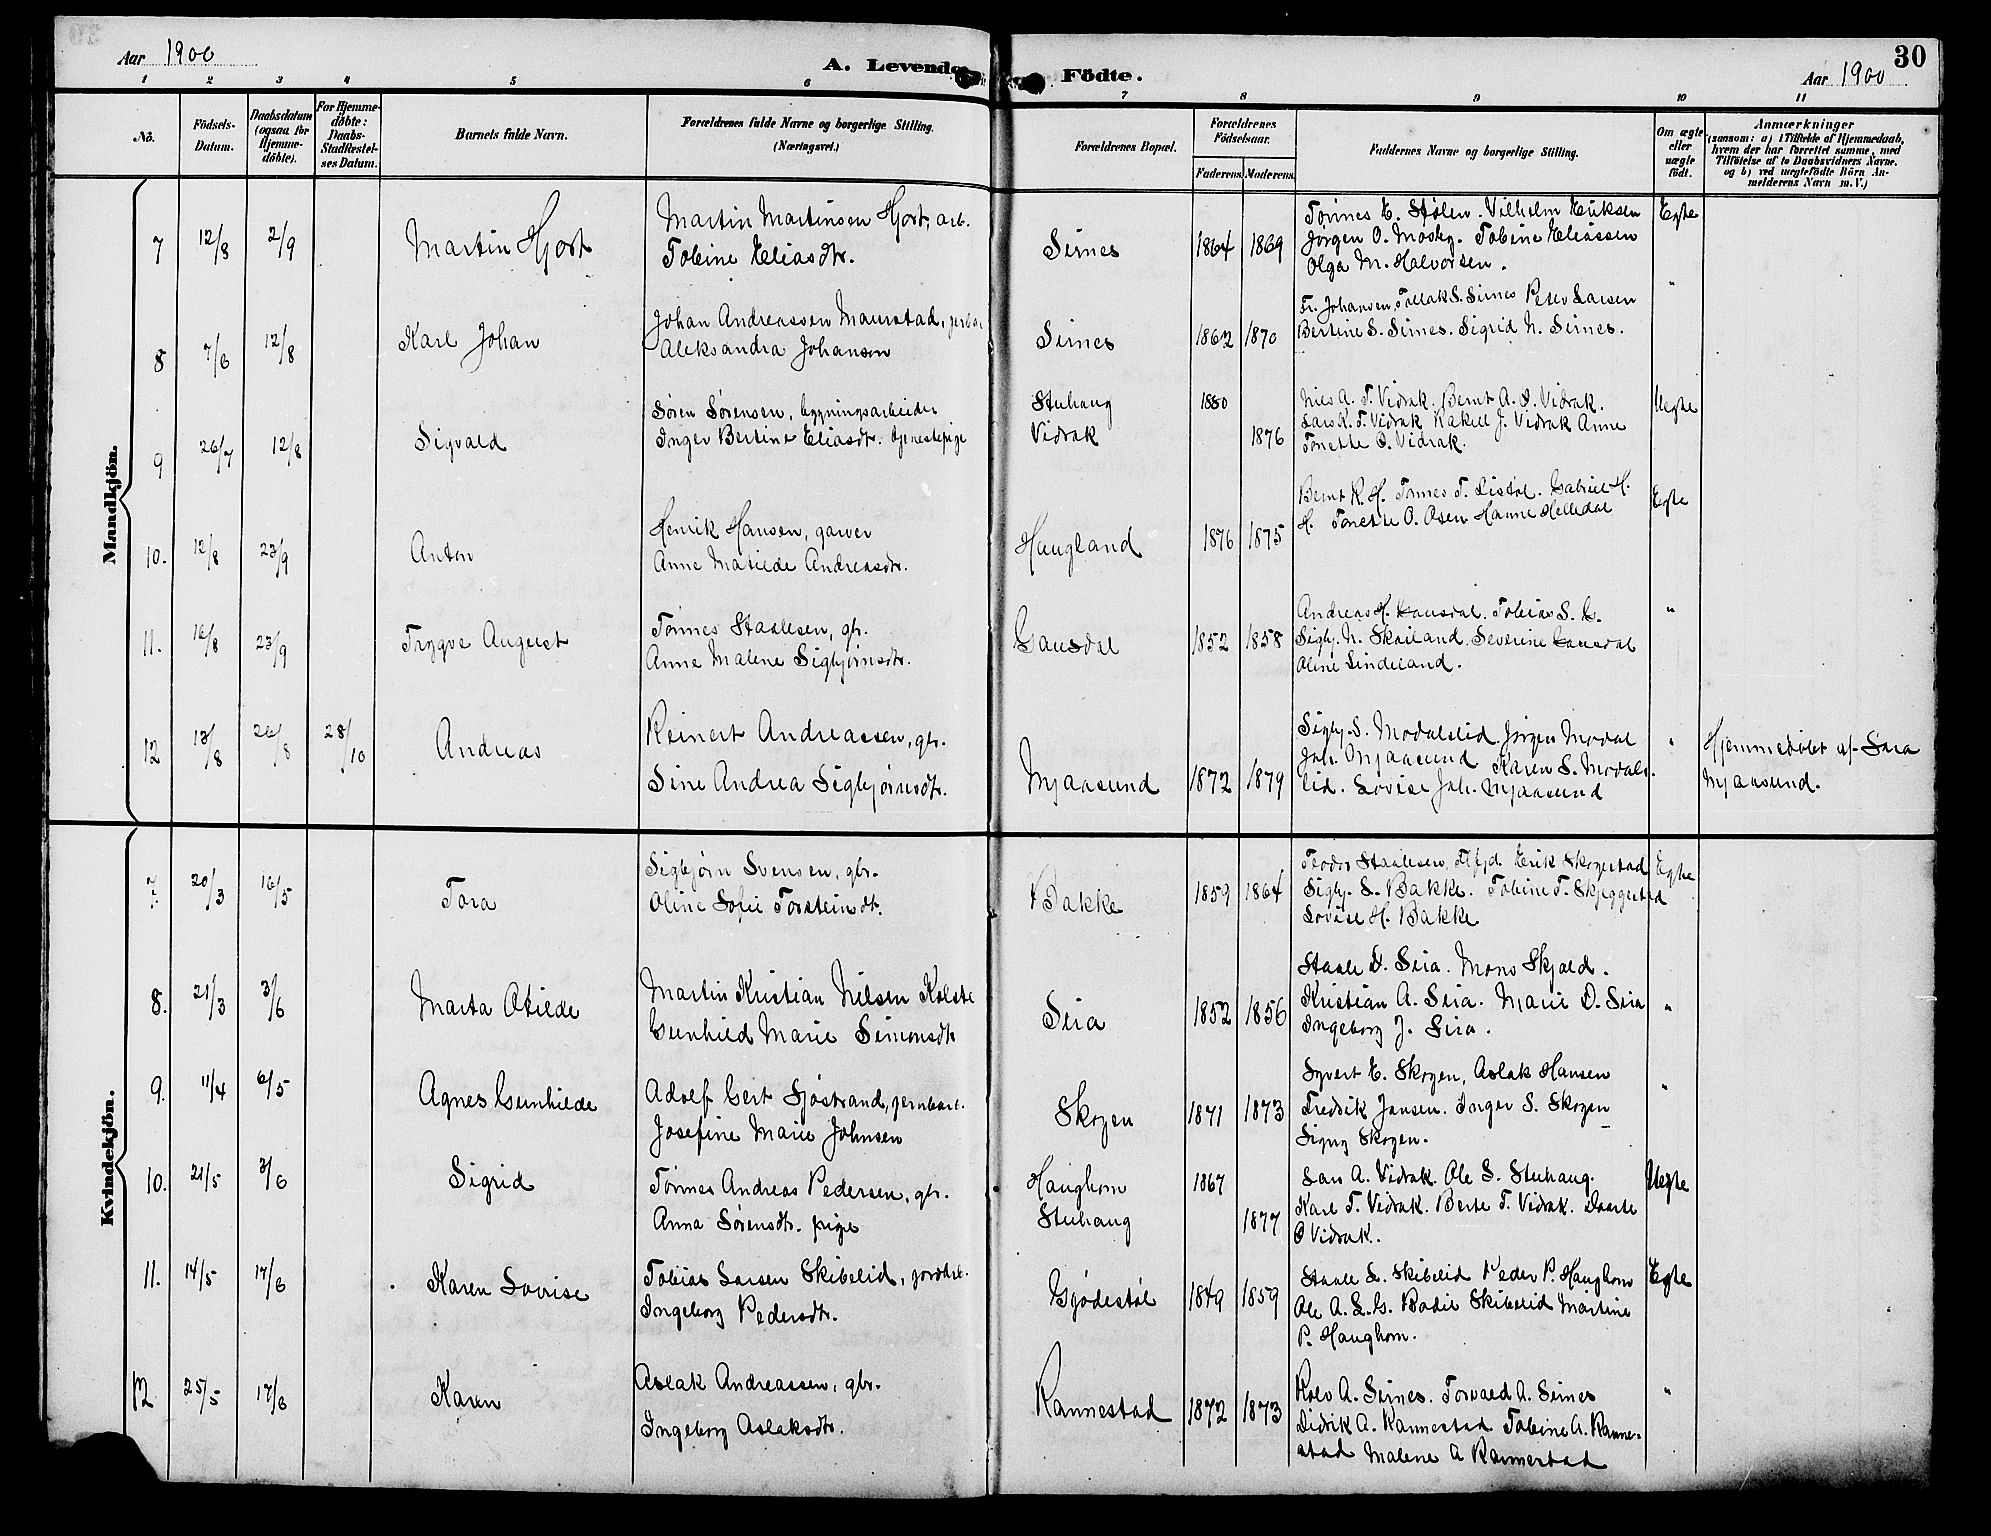 Aar 1900
A. Levende Födte.
30
Aar 1900
1 2 3 4 5 6 7 8 9 10 11
No.
Födsels-Datum.
Daabsdatum (ogsaa for Hjemme-döbte).
For Hjemme-döbte: Daabs-Stadfæstel-ses Datum.
Barnets fulde Navn.
Forældrenes fulde Navne og borgerlige Stilling. (Næringsvei.)
Forældrenes Bopæl.
Forældrenes Födselsaar.
Faderens. Moderens.
Faddernes Navne og borgerlige Stilling.
Om ægte eller uægte födt.
Anmærkninger
(saasom: a) i Tilfælde af Hjemmedaab,
hvem der har forrettet samme, med
Tilföielse af to Daabsvidners Navne.
og b) ved uægtefödte Börn An-
melderens Navn m. V.)
Mandkjön.
7 12/8 2/9 Martin Hjort
Martin Martinsen Hjort, arb.
Tobine Eliasdtr.
Sirnes 1864 1869
Tønnes E. Stølen. Vilhelm Eriksen
Jørgen O. Moshg. Tobine Eliassen
Olga M. Halvorsen.
Egte
8 7/6 12/8 Karl Johan
Johan Andreassen Maurstad,
Aleksandra Johansen
Sirnes 1862 1870
Fr. Johansen, Tollak S. Sirnes Peter Larsen
Bertine S. Sirnes. Sigrid N. Sirnes.
"
9 26/7 12/8 Sigvald
Søren Sørensen, bygningsarbeider
Inger Bertine Eliasdtr. tjenestepige
Stuhaug 1880
Vidrak 1876
Nils A. T. Vidrak. Bernt A. S. Vidrak.
Lars K. T. Vidrak Rakel J. Vidrak Anne
Tonette O. Vidrak.
Uegte
10. 12/8 23/9 Anton
Henrik Hansen, garver
Anne Matilde Andreasdtr.
Haugland 1876 1875
Bernt R. H. Tønnes T. Listøl. Gabriel H.
H. Tonette O. Osen Hanne Helledal
Egte
11. 16/8 23/9 Trygve August
Tønnes Staalesen, gbr.
Anne Malene Sigbjørnsdtr.
Gausdal 1852 1858
Andreas H. Gausdal. Tobias S. G.
Sigbj. N. Skailand. Severine Gausdal
Oline Lindeland.
"
12 13/8 26/8 28/10 Andreas
Reinert Andreassen, gbr.
Sine Andrea Sigbjørnsdtr.
Mjaasund 1872 1879
Sigbj. S. Modalslid. Jørgen Modal
Joh. Mjaasund Karen S. Modals-
lid. Lovise Joh. Mjaasund
"
Hjemmedøbt af Sara
Mjaasund.
Kvindekjön.
7. 20/3 16/5 Tora
Sigbjørn Svensen, gbr.
Oline Sofie Torsteinsdtr.
Bakke 1859 1864
Teodor Staalesen, Flfjd. Erik Skogestad
Sigbj. S. Bakke. Tobine T. Skjeggestad
Lovise H. Bakke.
Egte
8. 21/3 3/6 Marta Otilde
Martin Kristian Nilsen Kolstø
Gunhild Marie Simonsdtr
Sira 1852 1856
Staale D. Sira. Mons Skjold.
Kristian A. Sira. Marie D. Sira
Ingeborg J. Sira.
"
9. 11/4 6/5 Agnes Gunhilde
Adolf Gert Sjøstrand, jernbarb.
Josefine Marie Johnsen
Skogen 1871 1873
Syvert E. Skogen, Aslak Hansen
Fredrik Jansen. Inger S. Skogen
Signy Skogen.
"
10. 21/5 3/6 Sigrid
Tønnes Andreas Pedersen, gbr.
Anna Sørensdtr. pige
Haughom 1867
Stuhaug 1877
Lars A. Vidrak. Ole S. Stuhaug.
Karl T. Vidrak. Berte T. Vidrak. Dorte
O Vidrak.
Uegte
11. 14/5 17/6 Karen Lovise
Tobias Larsen Skibelid, jorddrb.
Ingeborg Pedersdtr.
Gjødestøl 1849 1859
Staale L. Skibelid Peder P. Haughom
Ole A. L. G. Bodil Skibelid Martine
P. Haughom.
Egte
12 25/5 17/6 Karen
Aslak Andreassen, gbr.
Ingeborg Aslaksdtr.
Rannestad 1872 1873
Rolv A. Sirnes. Torvald A. Sirnes
Didrik A. Rannestad Tobine A. Ranne-
stad Malene A Rannestad
"